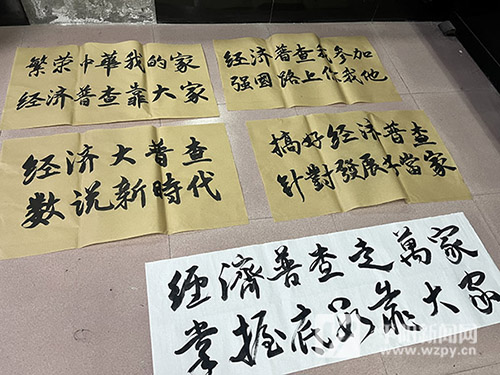 繁荣中華我的家
经济普查靠大家
经济普查我参加
强國路上你我他
经济大普查
数说新時代
搞好经济普查
针對發展當家
經濟普查走萬家
掌握底数靠大家
平阳新闻网
www.wzpy.cn